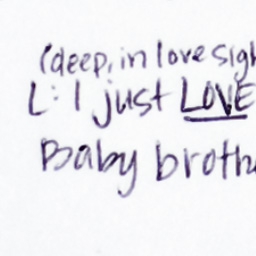 (deep, in love sigh
L: I just LOVE
Baby broth